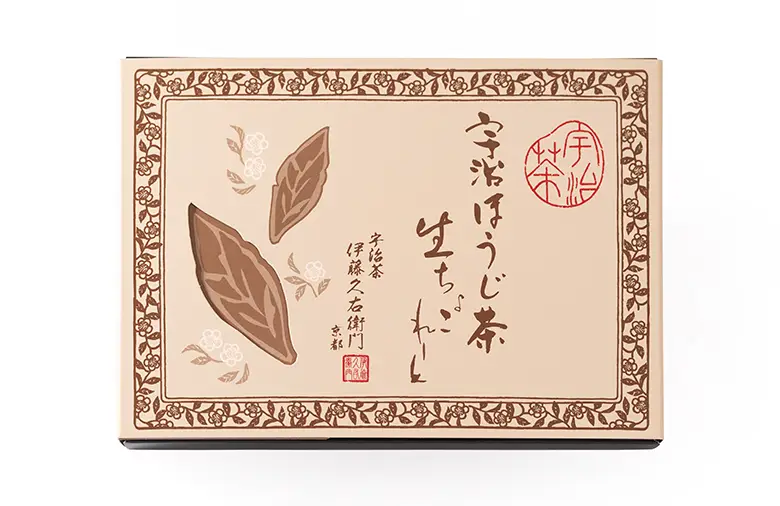 宇治茶
宇治ほうじ茶
生ちょこれーと
宇治茶
伊藤久右衛門
京都